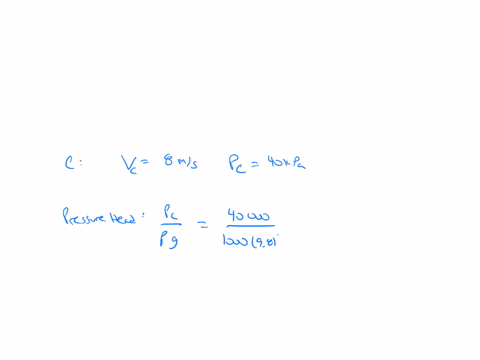 C: V_C = 8 m/s P_C = 40 kPa
Pressure Head: P_C / ρg = 40 000 / 1000 (9.81)